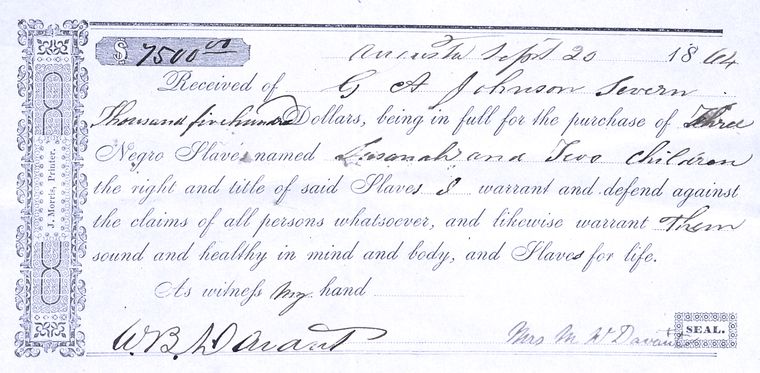 $ 7500 00
Augusta Sept 20 1864
Received of G A Johnson Seven
Thousand five hundred Dollars, being in full for the purchase of Three
Negro Slaves named and Two Children
the right and title of said Slaves I warrant and defend against
the claims of all persons whatsoever, and likewise warrant Them
sound and healthy in mind and body, and Slaves for life.
As witness my hand
W. B. Davant
Mrs M W Davant SEAL.
J. Morris, Printer.